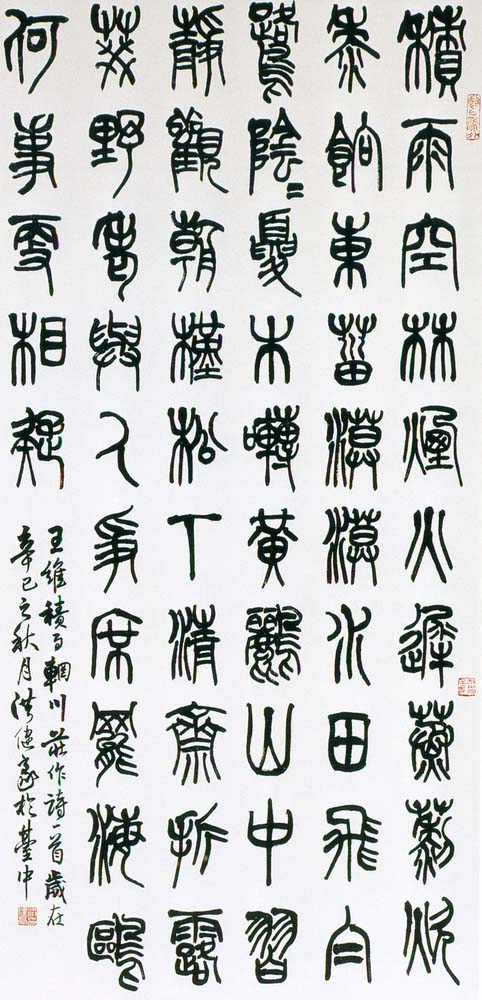 積雨空林煙火遲蒸藜炊
黍餉東菑漠漠水田飛白
鷺陰〻夏木囀黃鸝山中習
靜觀朝槿松下清齋折露
葵野老與人爭席罷海鷗
何事更相疑
王維積雨輞川莊作詩一首歲在
辛巳之秋月洪於臺中